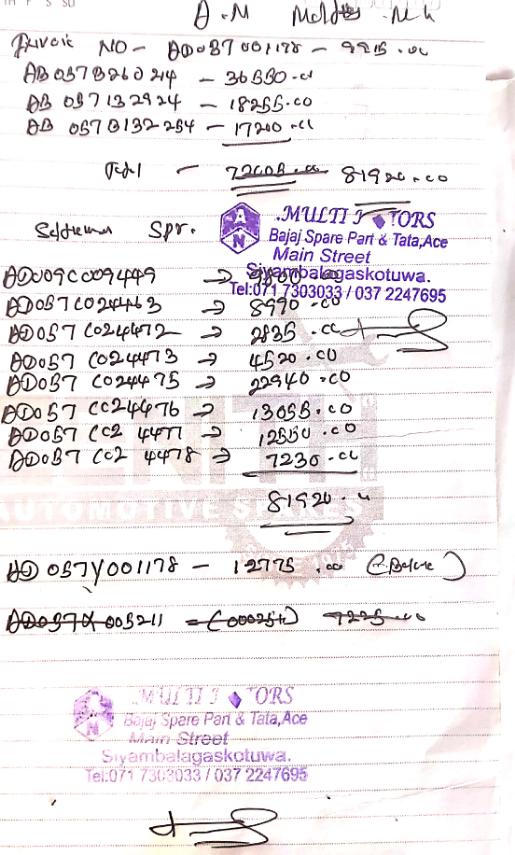 A.M Motors
Invoice NO - AD057Y001178 - 9915.00
AB057B26024 - 36550.00
AB 057132924 - 18255.00
AB 057B132254 - 17200.00
Total - 72005.00 81920.00
MULTI MOTORS
Bajaj Spare Part & Tata,Ace
Main Street
Siyambalagaskotuwa.
Tel:071 7303033 / 037 2247695
Spr.
AD009C009449 → 9800.00
AD057C024463 → 8990.00
AD057C024472 → 2835.00
AD057C024473 → 4520.00
AD057C024475 → 22940.00
AD057CC24476 → 13055.00
AD057CC2 4477 → 12550.00
AD057CC2 4478 → 7230.00
81920.00
AUTOMOTIVE SPARES
AD 057Y001178 - 12775.00
005211 = 7225.00
MULTI MOTORS
Bajaj Spare Part & Tata,Ace
Main Street
Siyambalagaskotuwa.
Tel:071 7303033 / 037 2247695